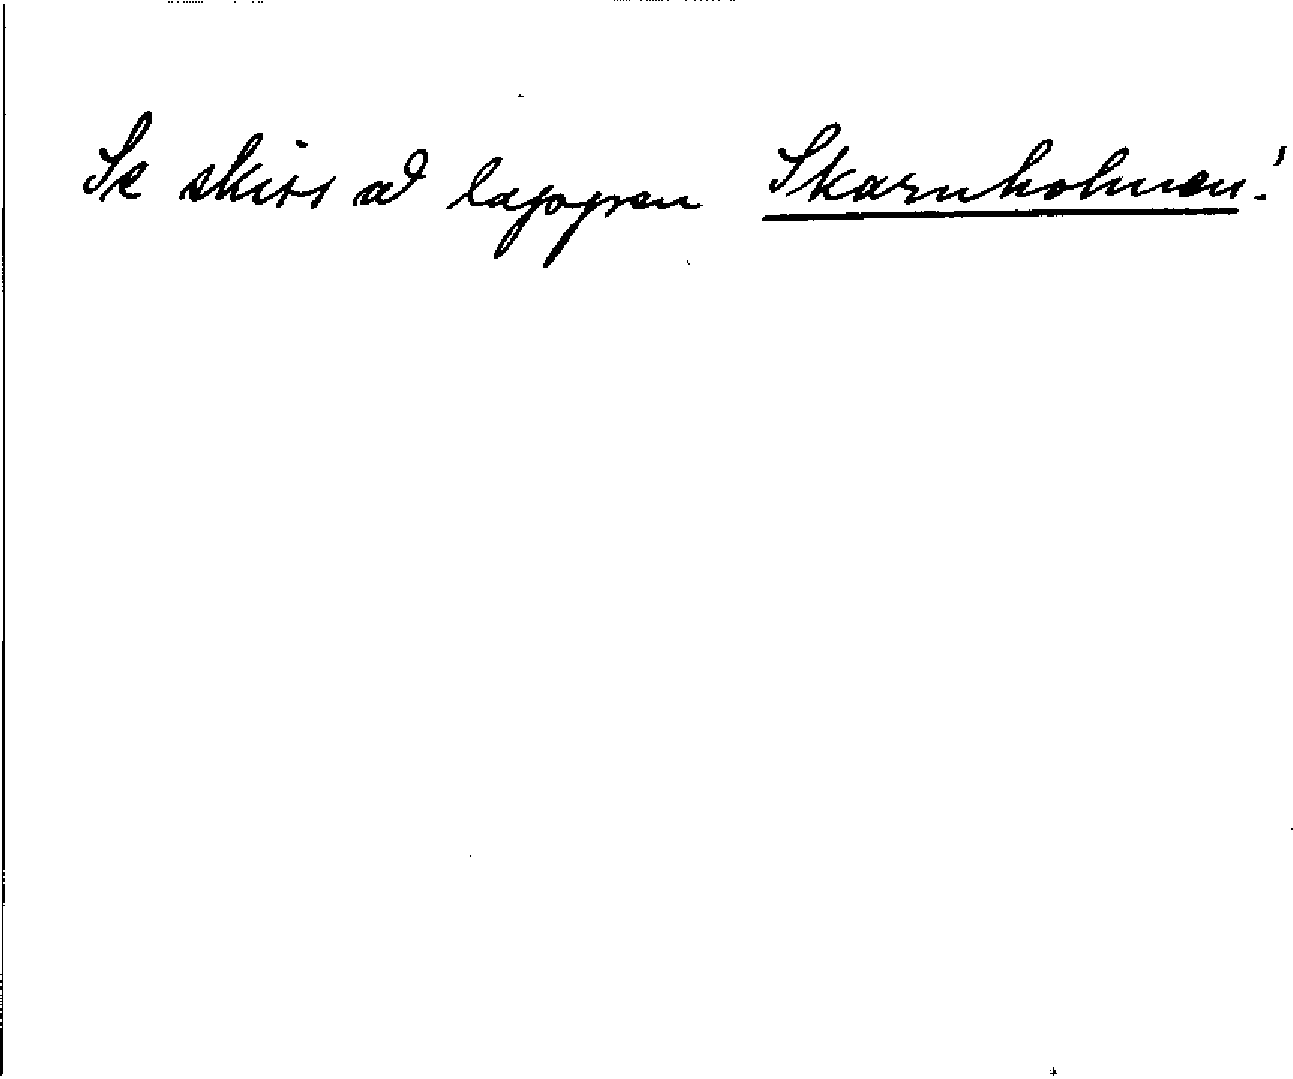 Se skiss å lappen Skarnholmen!